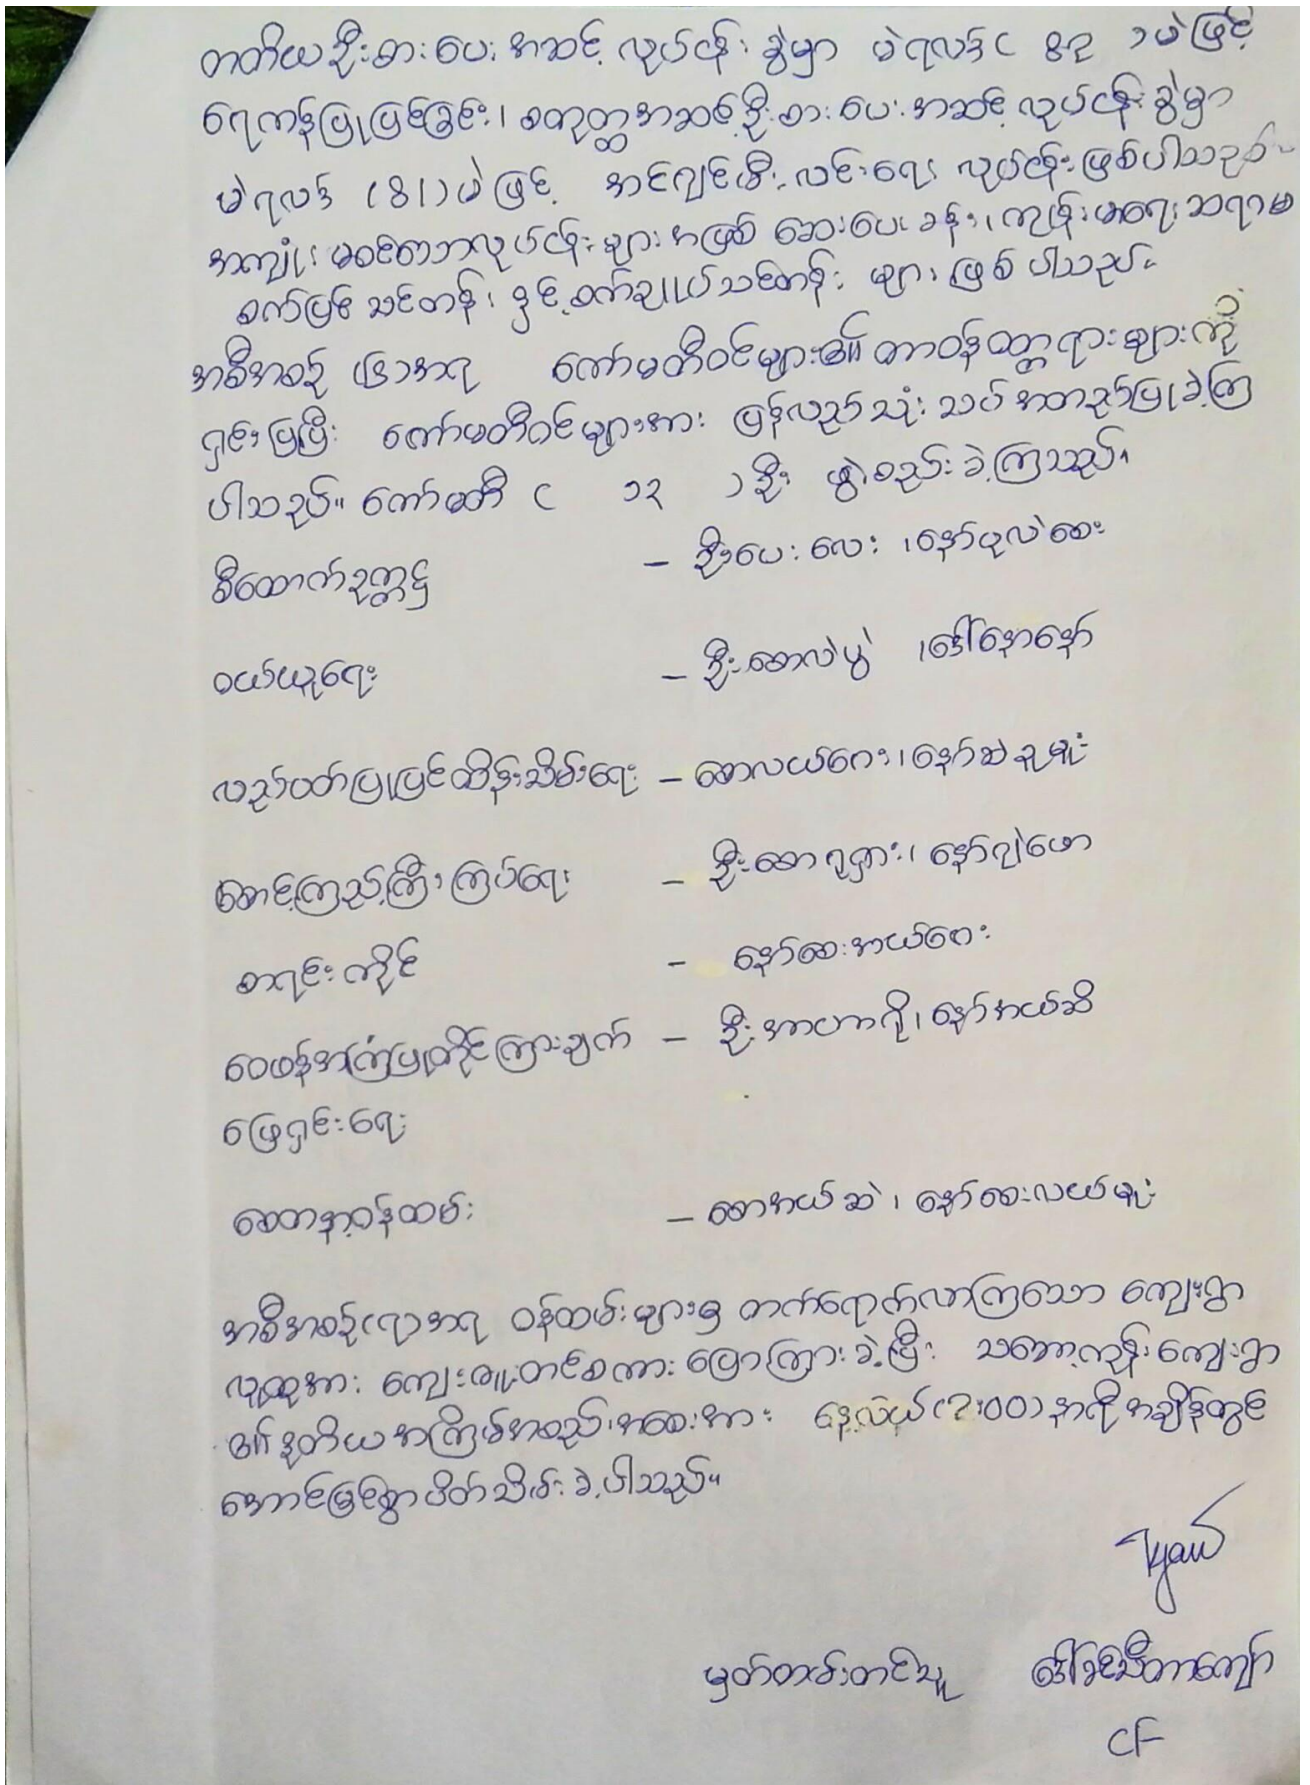 တတိယဦးစားပေးအဆင့် လုပ်ငန်းခွဲမှာ မဲရလဒ် ( ၄၃ ) မဲဖြင့်
ရေကန်ပြုပြင်ခြင်း၊ စတုတ္ထအဆင့်ဦးစားပေးအဆင့် လုပ်ငန်းခွဲမှာ
မဲရလဒ် (၄၂) မဲဖြင့် အင်ဂျင်မီးလင်းရေး လုပ်ငန်းဖြစ်ပါသည်။
အကျုံးမဝင်သောလုပ်ငန်းများအဖြစ် ဆေးပေးခန်း၊ ကျန်းမာရေးဆရာမ
စက်ပြင်သင်တန်း၊ နှင့်စက်ချုပ်သင်တန်းများဖြစ်ပါသည်။
အစီအစဉ် (၆)အရ ကော်မတီဝင်များ၏ တာဝန်ဝတ္တရားများကို
ရှင်းပြပြီး ကော်မတီဝင်များအား ပြန်လည်သုံးသပ်အတည်ပြုခဲ့ကြ
ပါသည်။ ကော်မတီ ( ၁၃ ) ဦး ဖွဲ့စည်းခဲ့ကြသည်။
စီထောက်ဥက္ကဋ္ဌ – ဦးပေးလေး ၊နော်ပုလဲစေး
ဝယ်ယူရေး – ဦးစောလဲပွဲ ၊ဒေါ်နောနော်
လည်ပတ်ပြုပြင်ထိန်းသိမ်းရေး – စောလယ်ဂေး၊နော်ဆဲနူမူး
စောင့်ကြည့်ကြီးကြပ်ရေး – ဦးစောဂူရှား၊ နော်ဂျဲဖော
စာရင်းကိုင် – နော်ဆေးအယ်ဂေး
ဝေဖန်အကြံပြုတိုင်ကြားချက် – ဦးအာဟာဂို၊ နော်အယ်ဆိ
ဖြေရှင်းရေး
စေတနာ့ဝန်ထမ်း – စောအယ်ဆဲ ၊ နော်ဆေးလယ်မူး
အစီအစဉ်(၇)အရ ဝန်ထမ်းများမှ တက်ရောက်လာကြသော ကျေးရွာ
လူထုအား ကျေးဇူးတင်စကား ပြောကြားခဲ့ပြီး သအော့ကုန်းကျေးရွာ
၏ ဒုတိယအကြိမ်အစည်းအဝေးအား နေ့လယ် (2:00) နာရီအချိန်တွင်
အောင်မြင်စွာပိတ်သိမ်းခဲ့ပါသည်။
Kyaw
မှတ်တမ်းတင်သူ ဒေါ်ခင်သီတာကျော်
CF